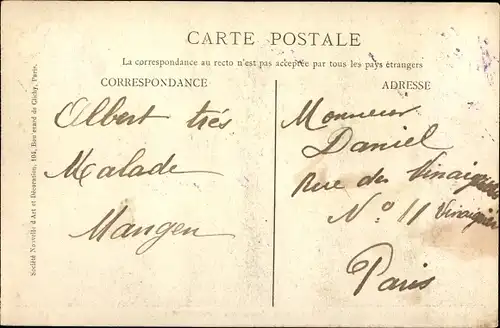 CARTE POSTALE
La correspondance au recto n'est pas acceptée par tous les pays étrangers
CORRESPONDANCE
ADRESSE
Albert très
Malade
Mangen
Monsieur
Daniel
Rue des Vinaigriers
No 11
Paris
Société Nouvelle d'Art et Décoration, 104, Boulevard de Clichy, Paris.